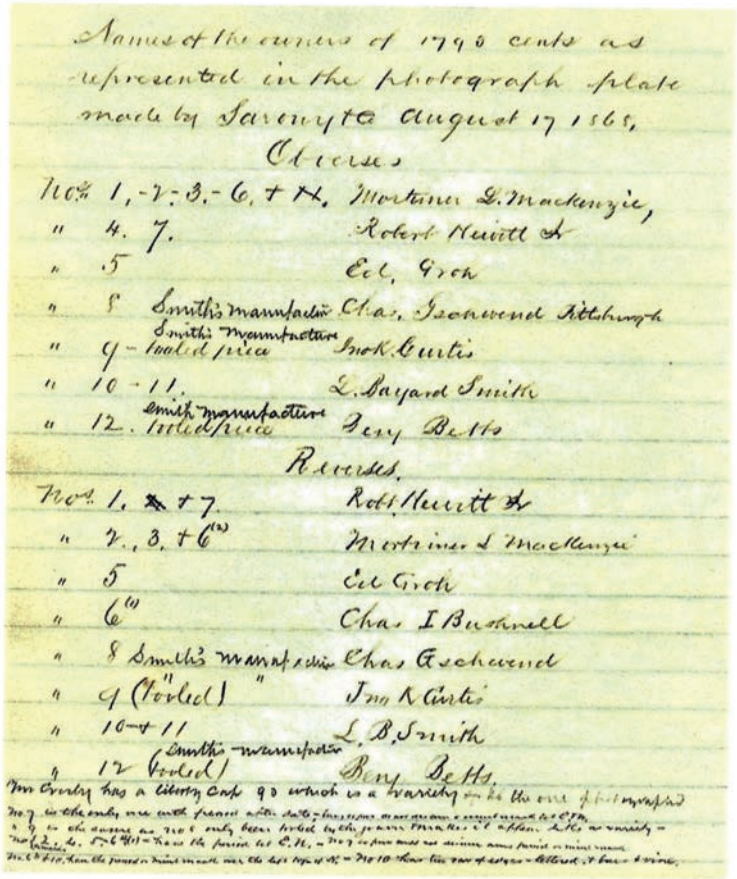 Names of the owners of 1793 cents as
represented in the photograph plate
made by Sarony &c August 17 1868.
Obverses
Nos. 1,-2-3.-6, + Mortimer L. Mackenzie,
" 4. 7. Robert Hewitt Jr
" 5 Ed, Groh
" 8 Smith's manufactur Chas. Gschwend Pittsburgh
Smith's manufacture
" 9 - tooled piece Jno K. Curtis
" 10 - 11. L. Bayard Smith
Smith manufacture
" 12. tooled piece Benj Betts
Reverses.
Nos. 1, + 7. Robt. Hewitt Jr
" 2., 3. + 6(2) Mortimer L Mackenzie
" 5 Ed Groh
" 6(1) Chas I Bushnell
" 8 Smith's manufactur Chas Gschwend
" 9 (tooled) " " Jno K Curtis
" 10 + 11 L. B. Smith
Smith's manufactur
" 12 (tooled) Benj Betts.
Mr Crosby has a liberty cap 93 which is a variety to the one photographed
No. 7 is the only one with period after date
" 9 is the same as No 5 only been tooled by the makes it appear like a variety -